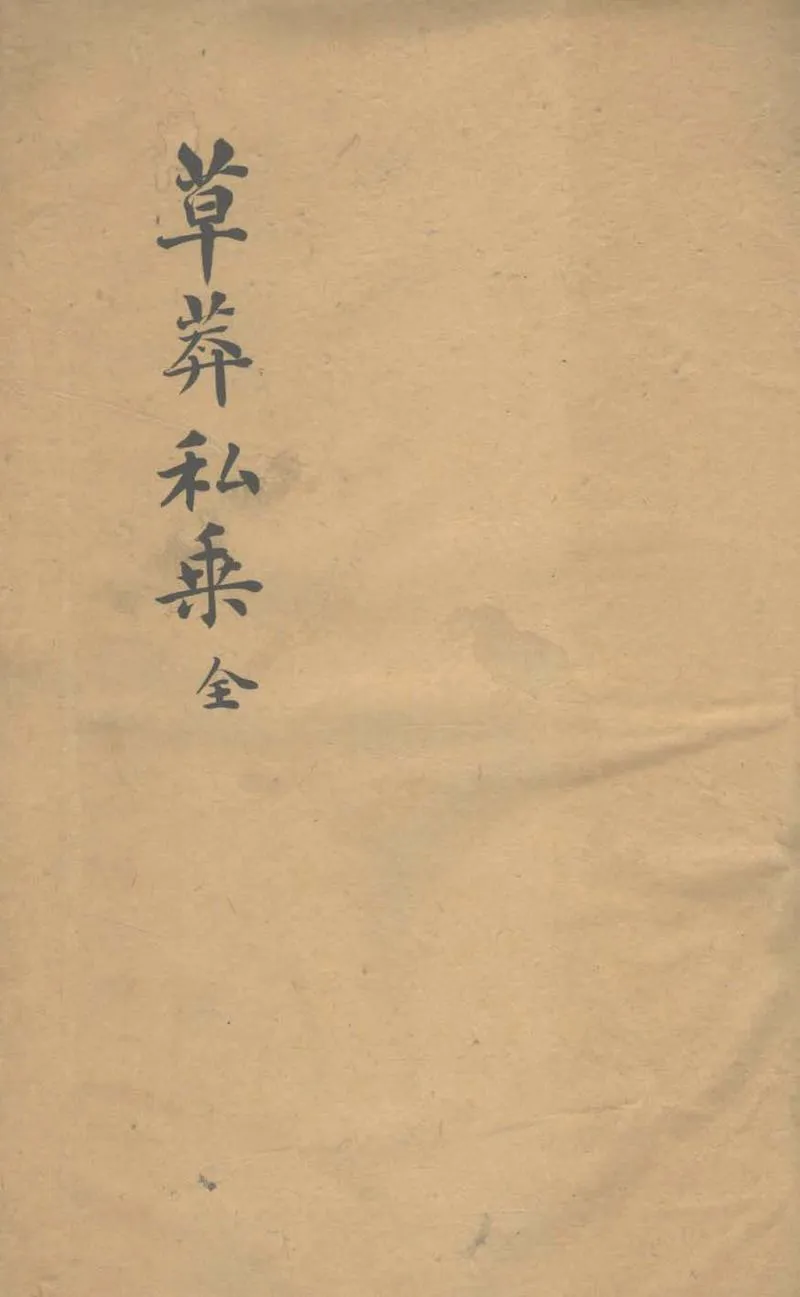 草莽私乘全